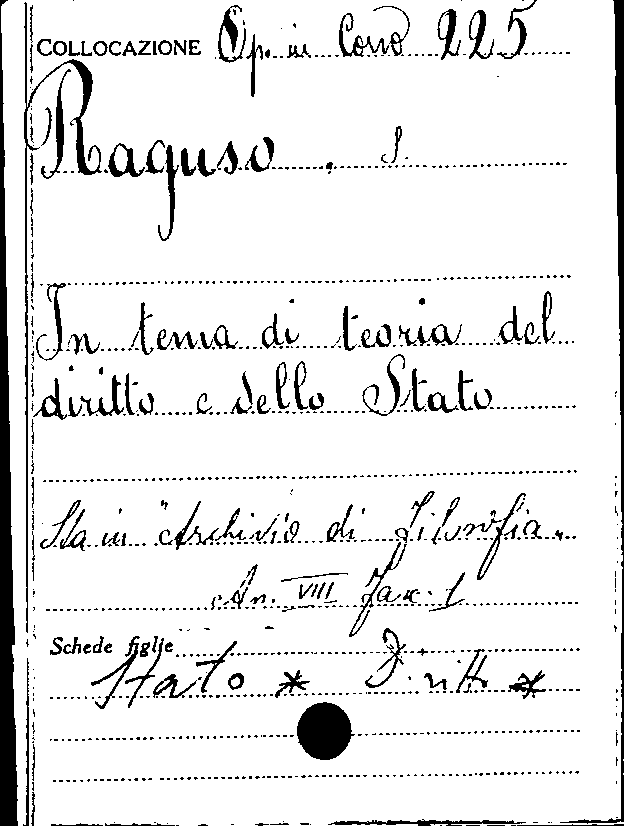 COLLOCAZIONE Op. in Corso 225
Raguso . S.
In tema di teoria del
diritto e dello Stato
Sta in "Archivio di Filosofia"
An. VIII Fasc. 1
Schede figlie
Stato * Diritto *